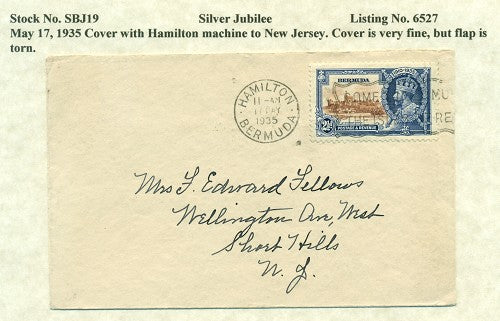 Stock No. SBJ19 Silver Jubilee Listing No. 6527
May 17, 1935 Cover with Hamilton machine to New Jersey. Cover is very fine, but flap is
torn.
HAMILTON
11 - AM
17 MAY
1935
BERMUDA
BERMUDA
1910-1935
2½
POSTAGE & REVENUE
Mrs F. Edward Fellows
Wellington Av, West
Short Hills
N. J.